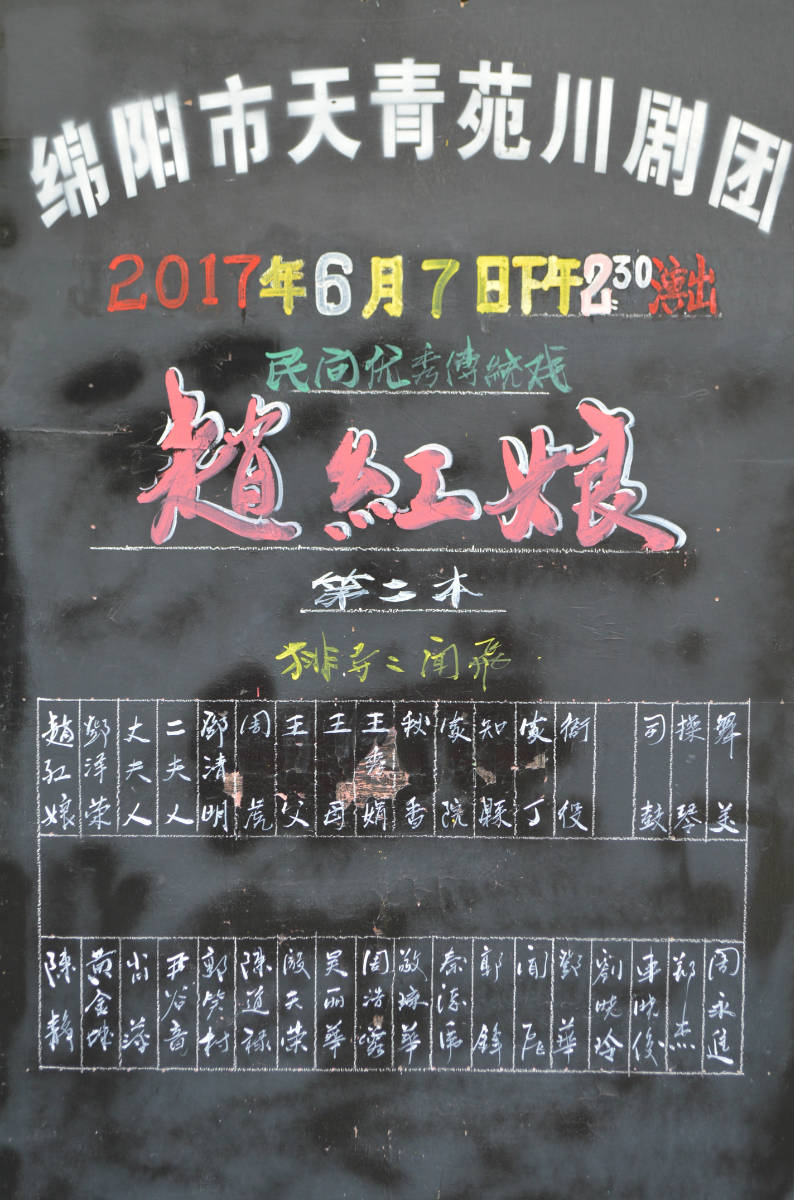 绵阳市天青苑川剧团
2017年6月7日下午2:30演出
民间优秀傳統戏
趙紅娘
第二本
排导: 闻飛
趙红娘 鄧泽荣 丈夫人 二夫人 邵清明 周虎 王父 王母 王秀娟 秋香 家院 知縣 家丁 衙役 司鼓 操琴 舞美
黄金 尚萍 尹谷音 郭 村 陈道禄 殷天荣 吴丽華 周浩 敬 華 秦 郭鋒 闻飞 鄧華 劉晓玲 車晓俊 郑杰 周永進